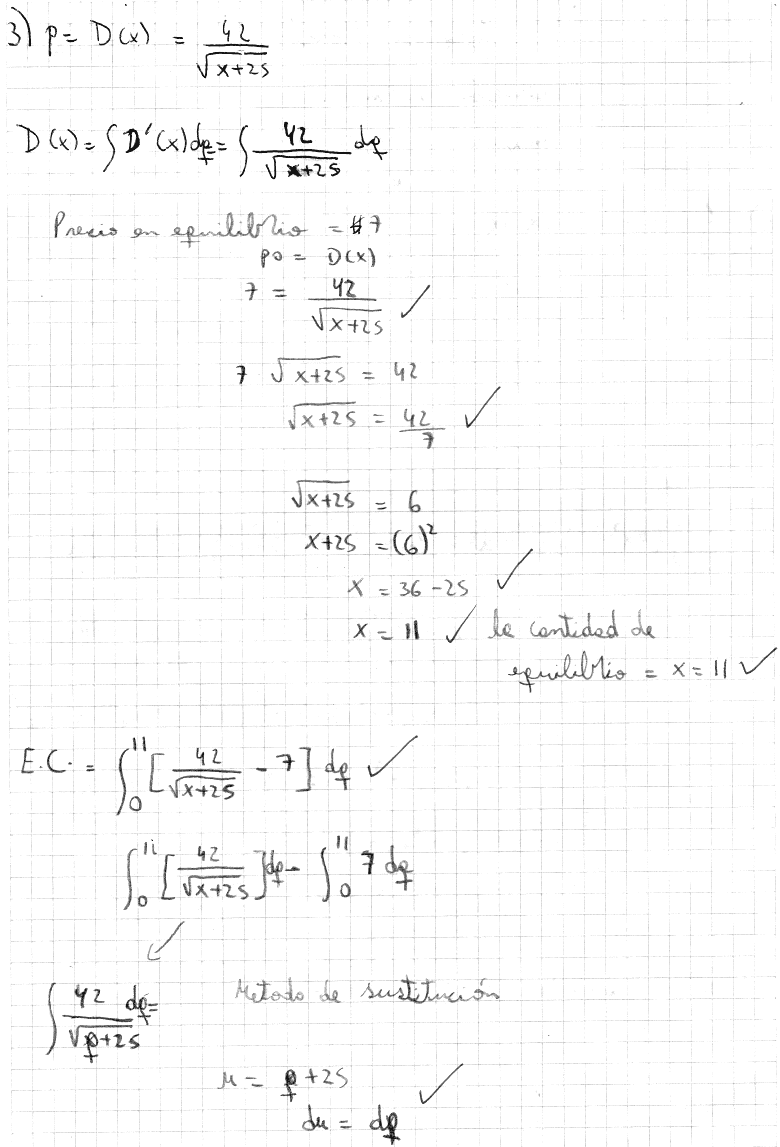 3) p = D(x) = 42/√(x+25)
D(x) = ∫ D'(x) dq = ∫ 42/√(x+25) dq
Precio en equilibrio = 7
p0 = D(x)
7 = 42/√(x+25) ✓
7 √(x+25) = 42
√(x+25) = 42/7 ✓
√(x+25) = 6
x+25 = (6)²
x = 36 - 25 ✓
x = 11 ✓ la cantidad de
equilibrio = x = 11 ✓
E.C. = ∫₀¹¹ [42/√(x+25) - 7] dq ✓
∫₀¹¹ [42/√(x+25)] dq - ∫₀¹¹ 7 dq
∫ 42/√(q+25) dq = Metodo de sustitución
u = q + 25
du = dq ✓